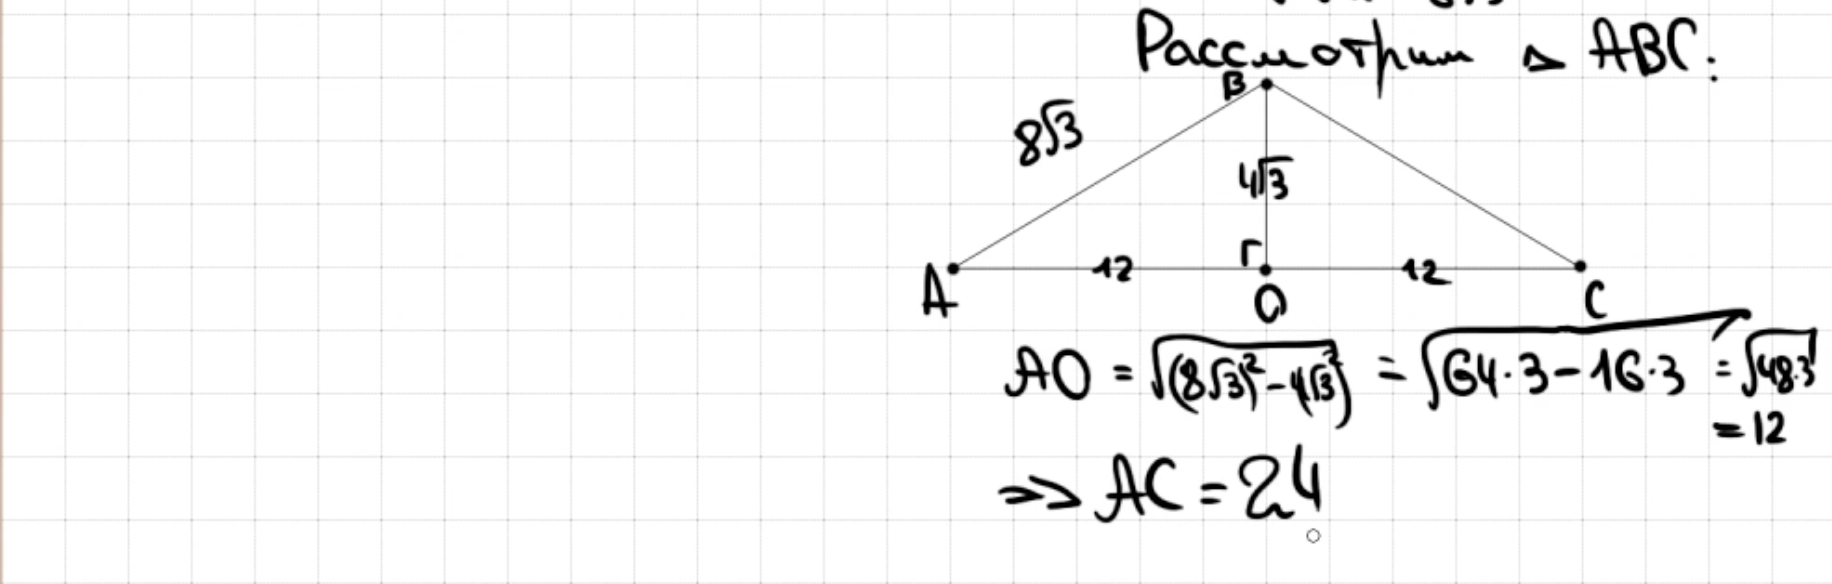 Рассмотрим △ ABC:
B
8√3
4√3
A 12 O 12 C
AO = √((8√3)² - 4√3²) = √(64·3 - 16·3) = √(48·3)
= 12
=> AC = 24